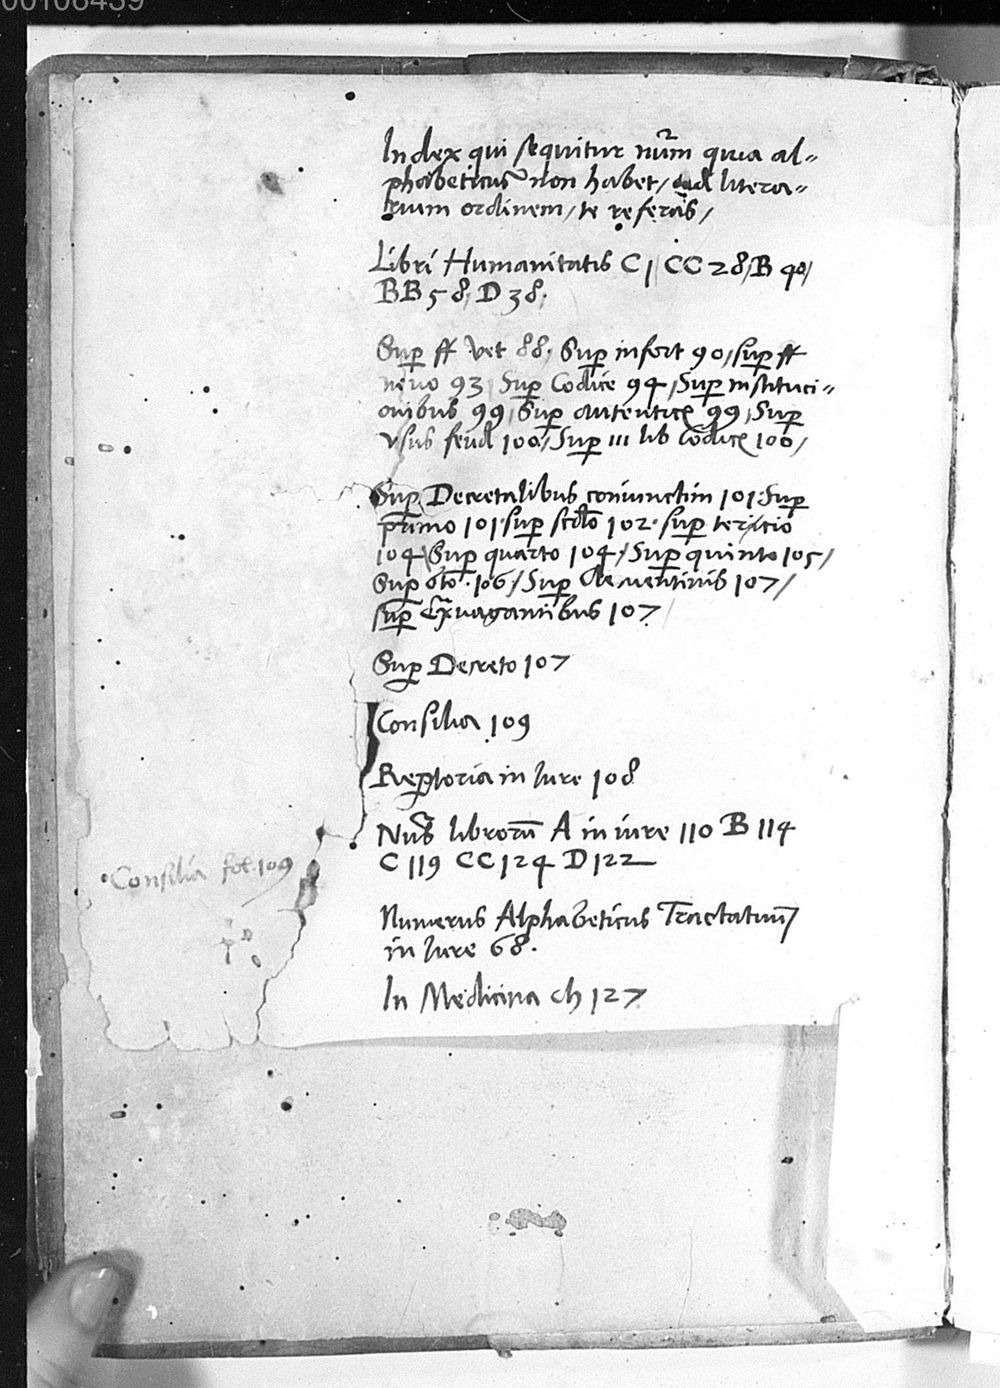 00106439
Index qui sequitur nũm quia al=
phabeticus non habet / ad litera=
rum ordinem / te referas /
Libri Humanitatis C 1 / CC 28 / B 40 /
BB 58 / D 38 .
Sup ff vet 88 . Sup infort 90 / sup ff
novo 93 / Sup Codice 94 / Sup instituci=
onibus 99 / Sup autentic 99 / Sup
usus feud 100 / Sup iii lib codic 100 /
Sup Decretalibus coniunctim 101 . Sup
primo 101 . sup scdo 102 . sup tercio
104 / Sup quarto 104 / Sup quinto 105 /
Sup 6to . 106 / Sup Clementinis 107 /
sup Exvagantibus 107
Sup Decreto 107
Consilia 109
Reptoria in Iure 108
Nũs librorũ A in iure 110 B 114
C 119 CC 124 D 122
Consilia fol. 109
Numerus Alphabeticus Tractatuũ
in Iure 68 .
In Medicina ch 127